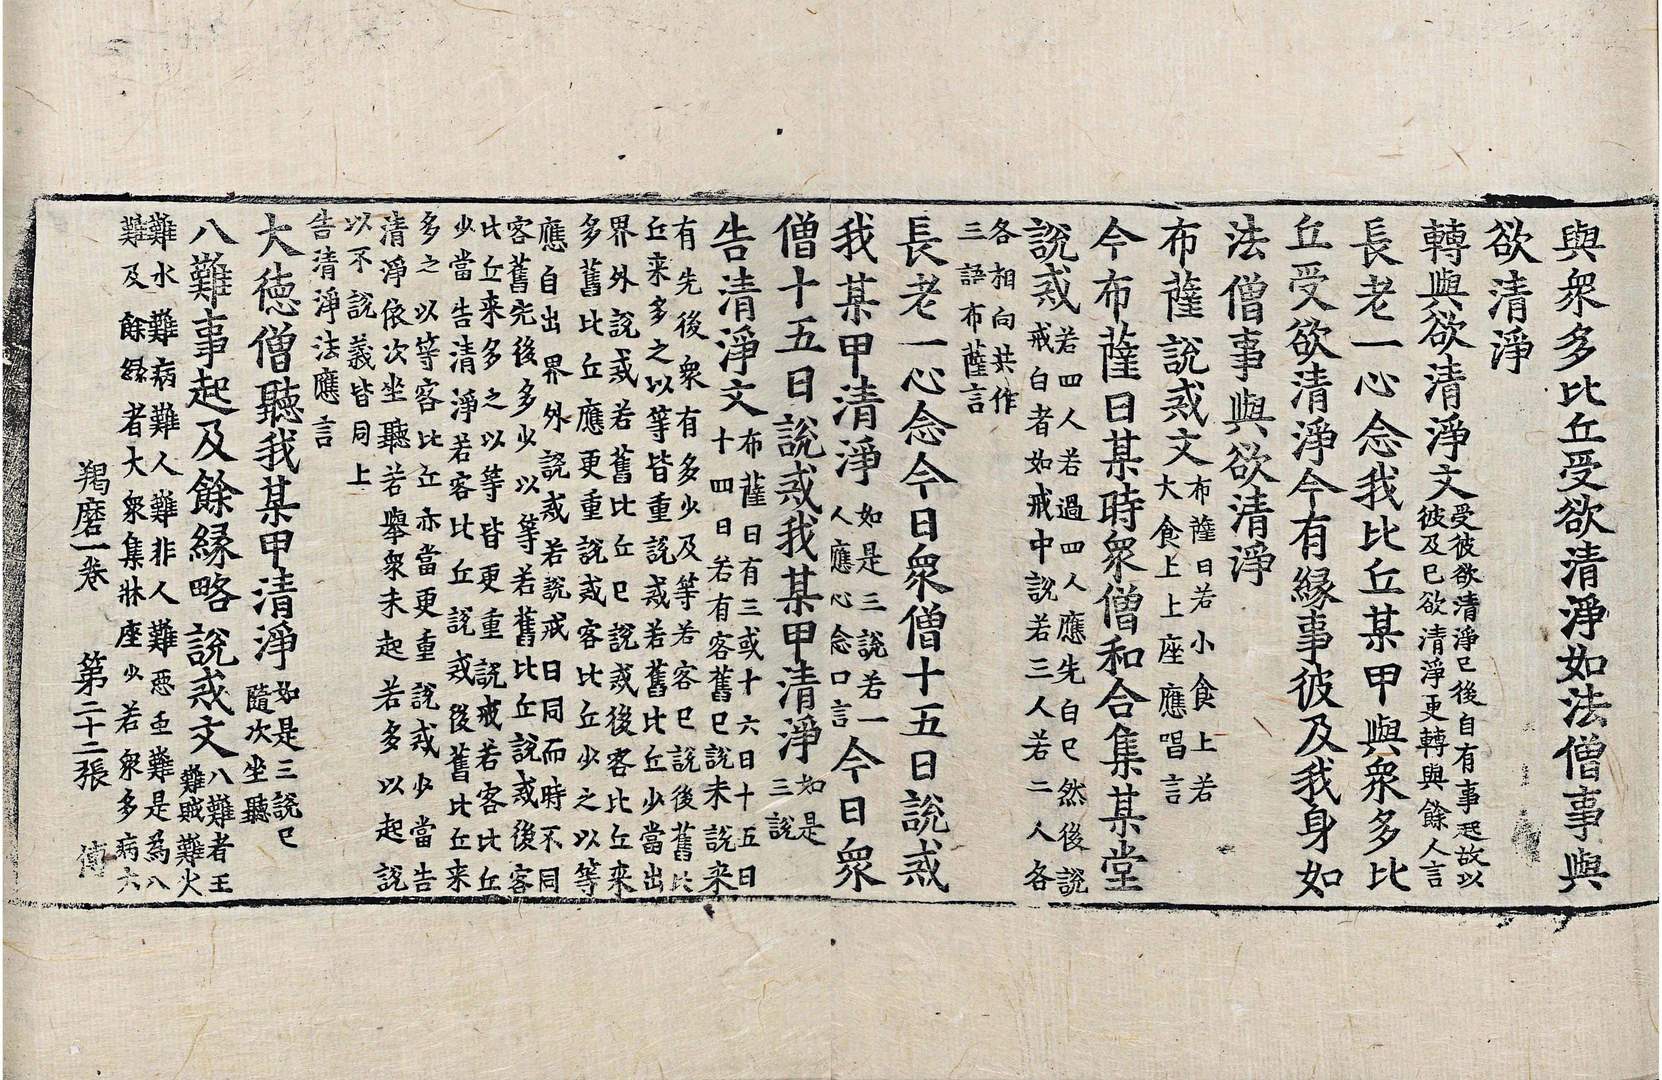 與衆多比丘受欲清淨如法僧事與
欲清淨
轉與欲清淨文
受彼欲清淨已後自有事起故以
彼及已欲清淨更轉與餘人言
長老一心念我比丘某甲與衆多比
丘受欲清淨今有緣事彼及我身如
法僧事與欲清淨
布薩說戒文
布薩日若小食上若
大食上上座應唱言
今布薩日某時衆僧和合集某堂
說戒
若四人若過四人應先白已然後說
戒白者如戒中說若三人若二人各
各相向共作
三語布薩言
長老一心念今日衆僧十五日說戒
我某甲清淨
如是三說若一
人應心念口言
今日衆
僧十五日說戒我某甲清淨
如是
三說
告清淨文
布薩日有三或十六日十五日
十四日若有客舊已說未說來
有先後衆有多少及等若客已說後舊比
丘来多之以等皆重說戒若舊比丘少當出
界外說戒若舊比丘已說戒後客比丘来
多舊比丘應更重說戒客比丘少之以等
應自出界外說戒若說戒日同而時不同
客舊先後多少以等若舊比丘說戒後客
比丘来多之以等皆更重說戒若客比丘
少當告清淨若客比丘說戒後舊比丘来
多之以等客比丘亦當更重說戒少當告
清淨依次坐聽若舉衆未起若多以起說
以不說義皆同上
告清淨法應言
大德僧聽我某甲清淨
如是三說已
隨次坐聽
八難事起及餘緣略說戒文
八難者王
難賊難火
難水難病難人難非人難惡虫難是為八
難及餘緣者大衆集牀座少若衆多病六
羯磨一卷　第二十二張　傅